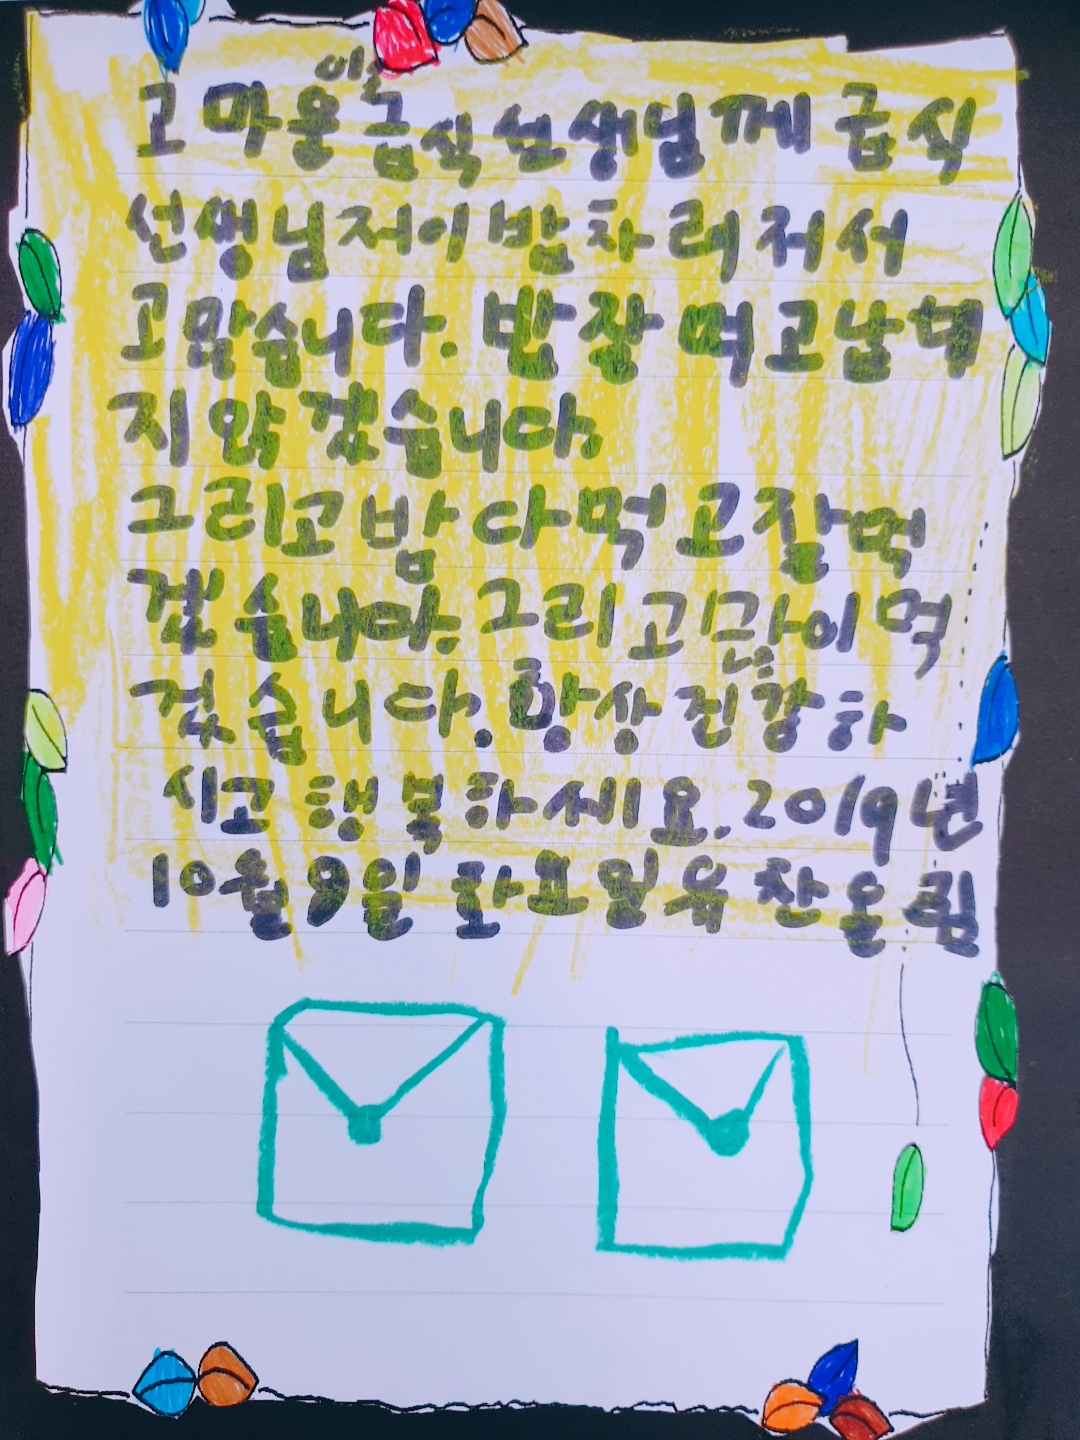 고마운 급식선생님께 급식
선생님 저이 밥 차려 저서
고맙습니다. 밥 잘 먹고 남기
지 않겠습니다.
그리고 밥 다 먹고 잘 먹
겠습니다. 그리고 많이 먹
겠습니다. 항상 건강하
시고 행복하세요. 2019년
10월 9일 화요일 유찬올림